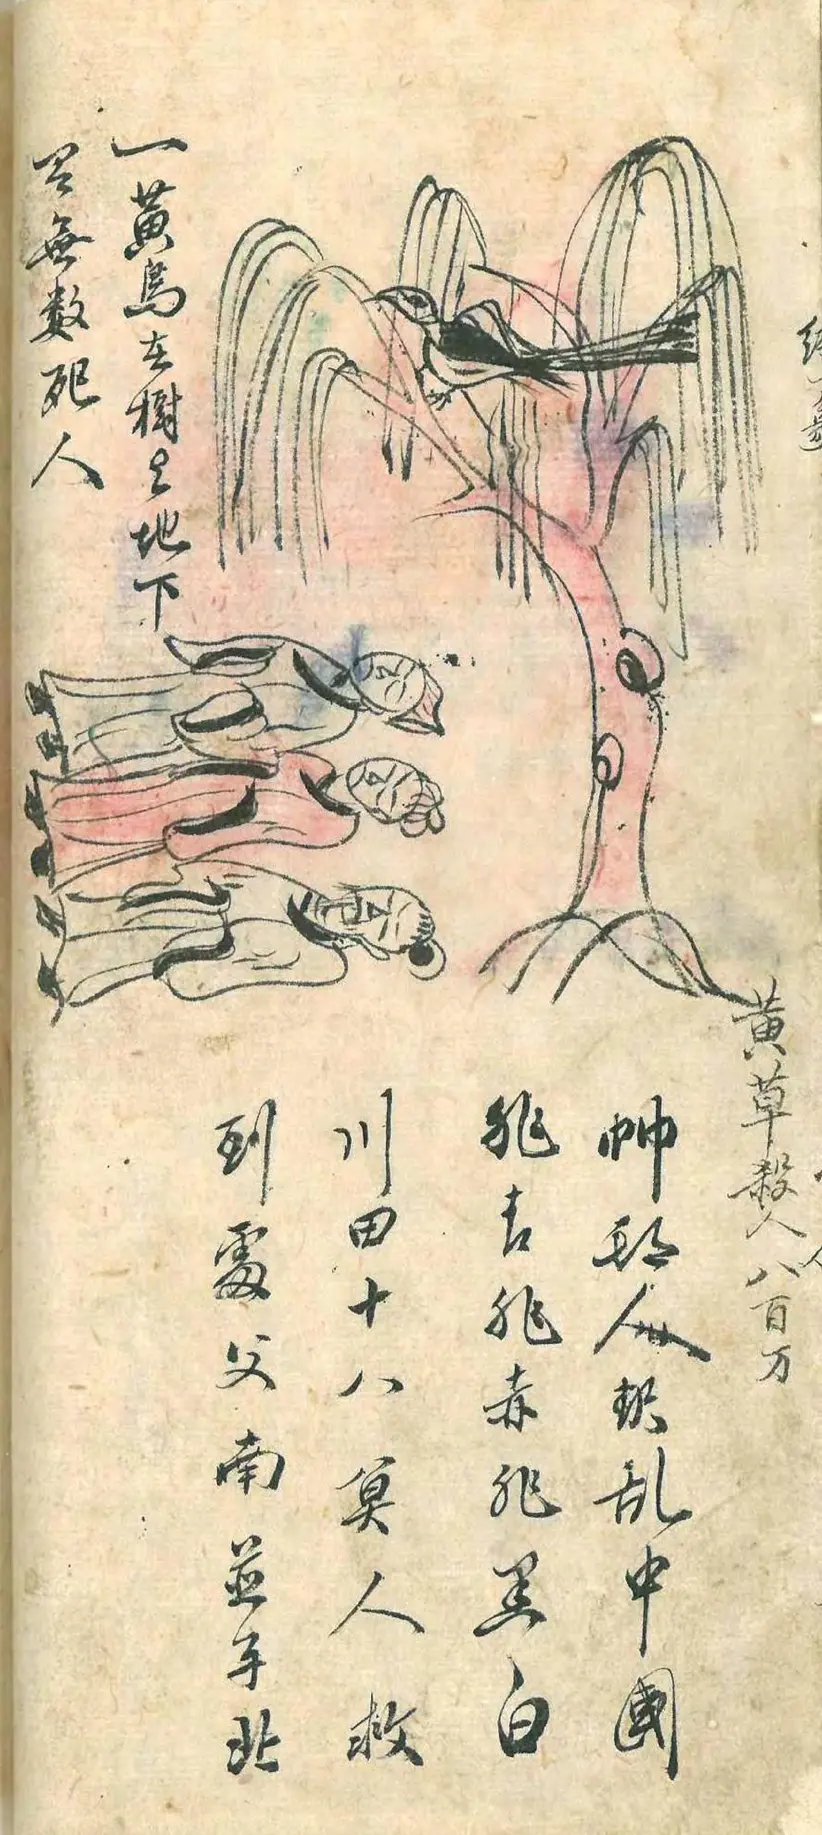 黃草殺人八百万
帅 人 乱中國
非青非赤非黑白
川田十八 人救
到 父南並 北
一黃鳥在樹上地下
無数死人